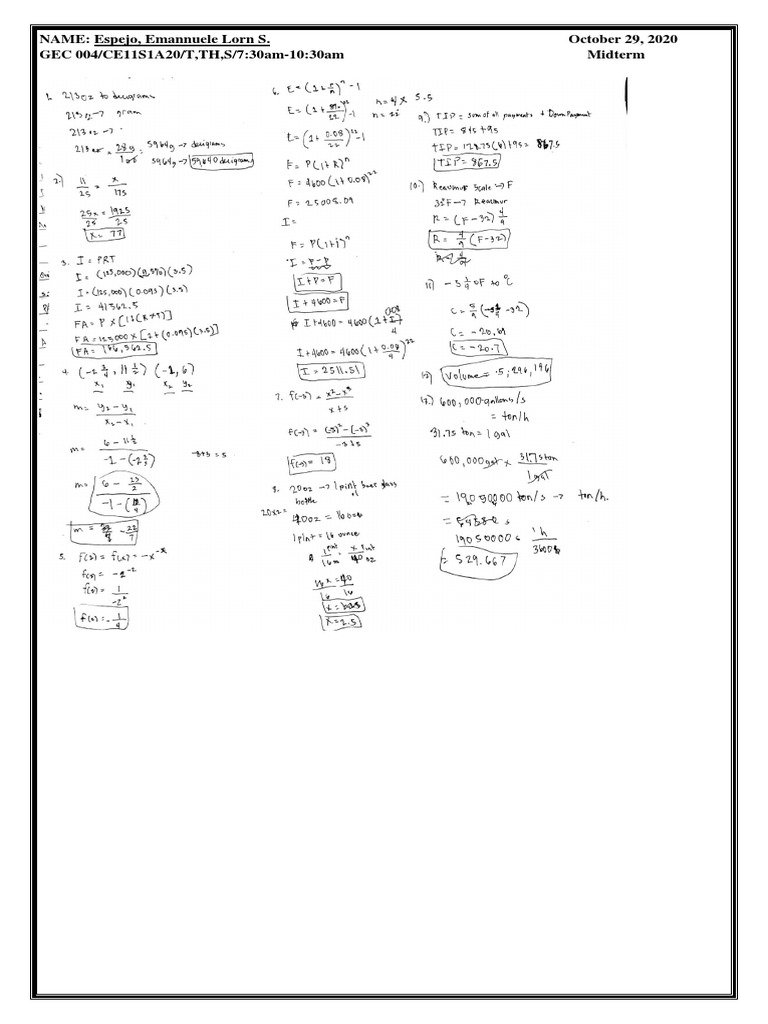 NAME: Espejo, Emannuele Lorn S. October 29, 2020
GEC 004/CE11S1A20/T,TH,S/7:30am-10:30am Midterm
1. 213 oz to decigrams
213 oz → gram
213 oz → ·
213 oz = 28g / 1 oz = 5964g → decigrams
5964g → 59,640 decigrams
2.) 11/25 = x/175
25x/25 = 1925/25
x = 77
3. I = PRT
I = (125,000)(9.5%)(3.5)
I = (125,000)(0.095)(3.5)
I = 41562.5
FA = P × [1+(R×T)]
FA = 125000 × [1+(0.095)(3.5)]
FA = 166,562.5
4 (-2 3/4, 11 1/2) (-1, 6)
x₁ y₁ x₂ y₂
m = y₂ - y₁ / x₂ - x₁
m = 6 - 11 1/2 / -1 - (-2 3/4)
m = 6 - 23/2 / -1 - (11/4)
m = - 22/7
5. f(2) = f(x) = -x⁻²
f(2) = -2⁻²
f(2) = 1 / -2²
f(2) = - 1/4
6. E = (1 + r/n)ⁿ - 1
n = 4 × 5.5
n = 22
E = (1 + 8%/22)²² - 1
E = (1 + 0.08/22)²² - 1
F = P(1+R)ⁿ
F = 4600(1+0.08)²²
F = 25008.09
I =
F = P(1+i)ⁿ
I = F - P
I + P = F
I + 4600 = F
I + 4600 = 4600(1 + 0.08/4)²²
I = 2511.51
7. f(-3) = x² - x³ / x + 5
f(-3) = (-3)² - (-3)³ / -3+5
-3+5 = 5
f(-3) = 18
8. 20oz → 1 pint beer glass
bottle
20x2 = 40oz = 16 ounce
1 pint = 16 ounce
1 pint / 16 oz = x pint / 40 oz
16x/16 = 40/16
x = 2.5
9.) TIP = sum of all payments + Down Payment
TIP = 845 + 95
TIP = 128.75(6) + 95 = 867.5
TIP = 867.5
10.) Reaumur Scale → F
35°F → Reaumur
R = (F - 32) 4/9
R = 4/9 (F - 32)
11) -5 1/4 °F to °C
C = 5/9 (-5 1/4 - 32)
C = -20.69
C = -20.7
12) Volume = 5,296,196
600,000 gallons/s
= ton/h
31.75 ton = 1 gal
600,000 gal × 31.75 ton / 1 gal
= 19050000 ton/s → ton/h.
19050000 s 1h / 3600 s
= 529.667